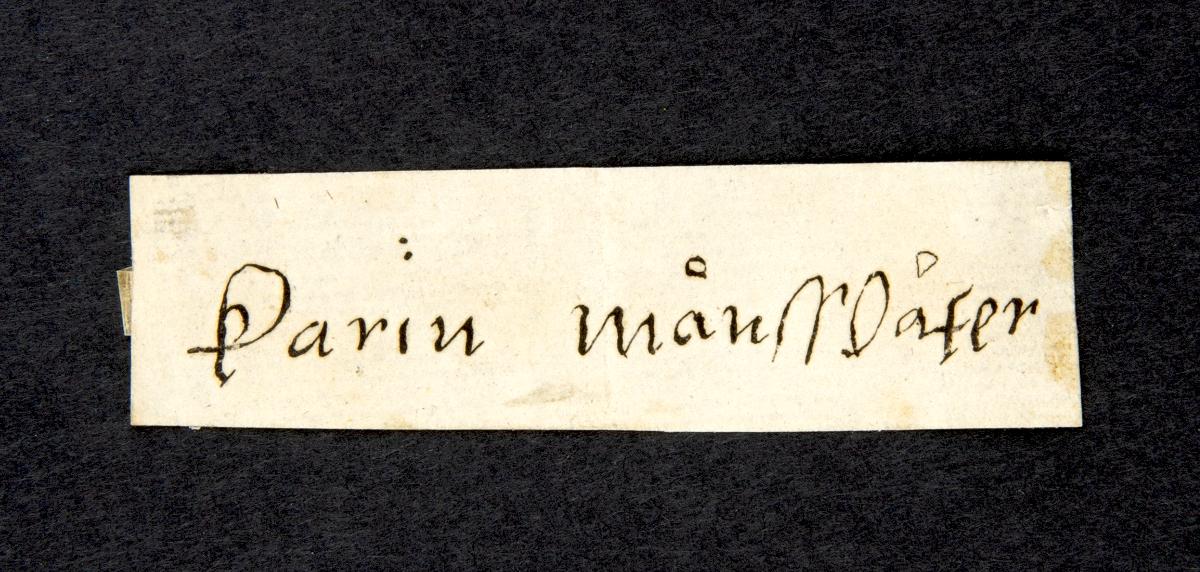 Karin månssdåter